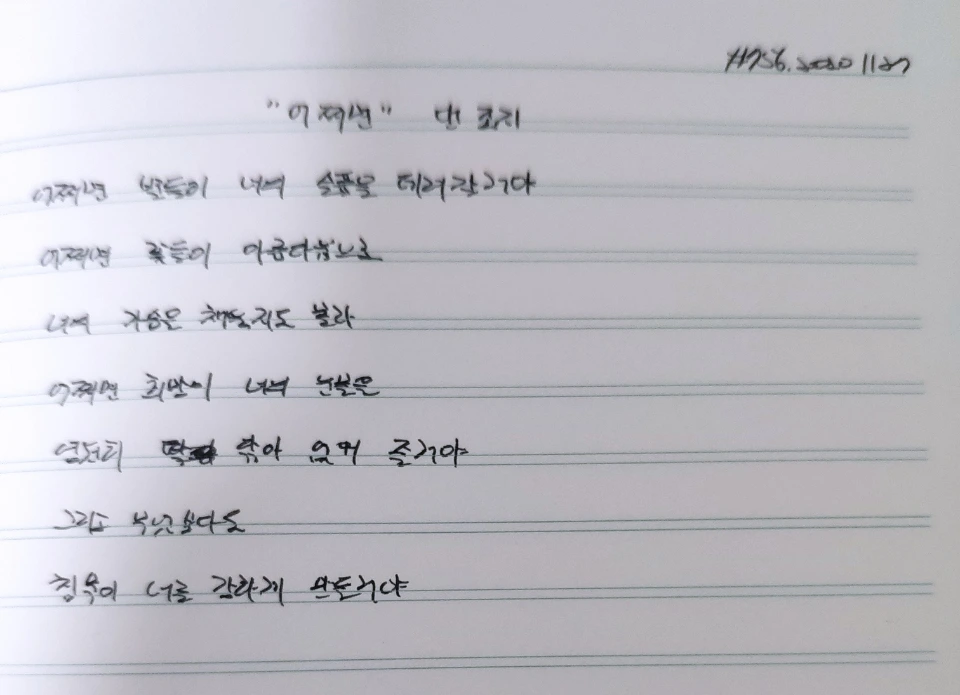 #756. 2020 11월
"어쩌면" 댄 조지
어쩌면 별들이 너의 슬픔을 데려갈거야
어쩌면 꽃들이 아름다움으로
너의 가슴을 채울지도 몰라
어쩌면 희망이 너의 눈물을
영원히 닦아 없애 줄거야
그리고 무엇보다도
침묵이 너를 강하게 만들거야